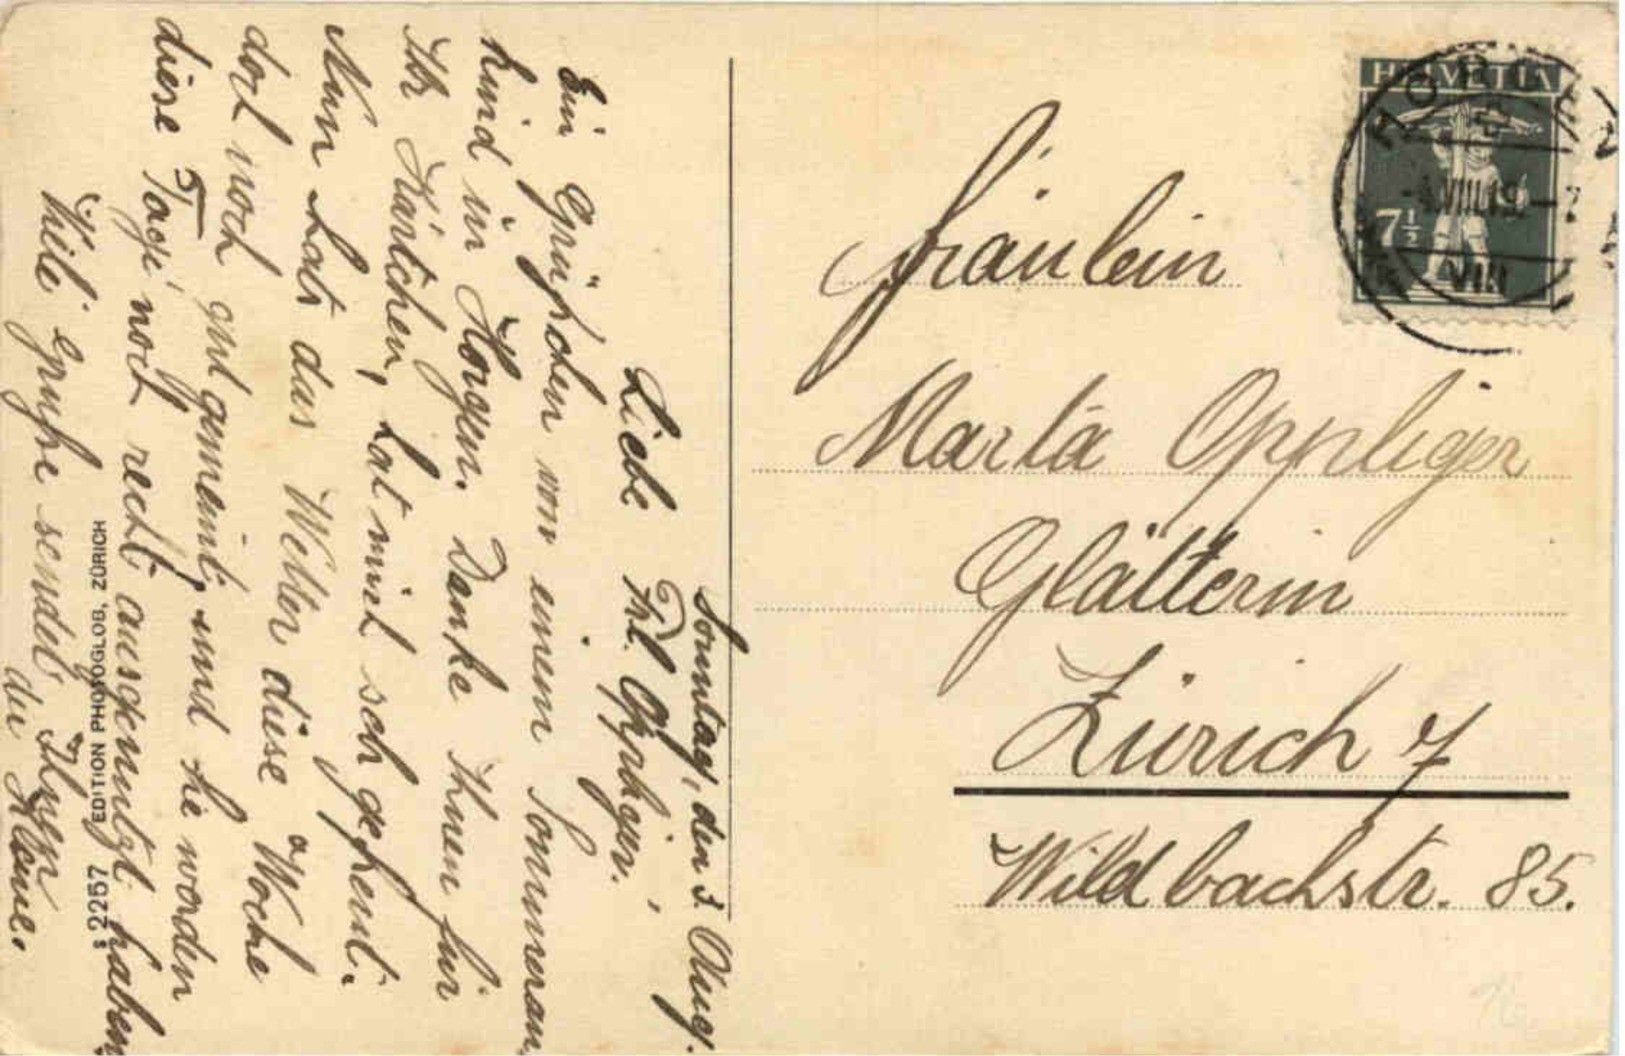 Sonntag, den 3. Aug.
Liebe Frl. Oppliger.
Ein Grüßchen von einem
hind in Horgen. Danke Ihnen für
Ihr Kärtchen, hat mich seh gefreut.
Nun hats das Wetter diese Woche
doch noch gut gemeint, und Sie werden
diese 5 Tage noch recht ausgenutzt haben,
Viele Grüße sendet Ihnen
du Kleine.
EDITION PHOTOGLOB, ZÜRICH
2257
HELVETIA
7½
HORGEN
VIII
Fräulein
Marta Oppliger
Glätterin
Zürich 7
Wildbachstr. 85.